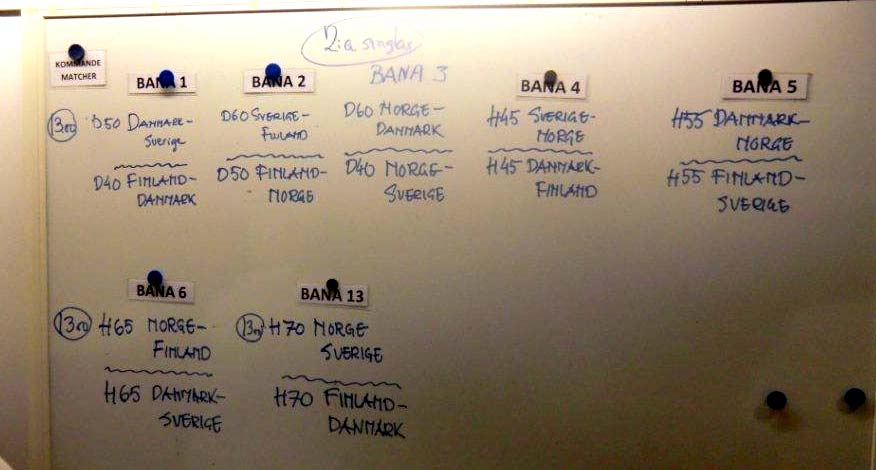 2:a singlar
KOMMANDE
MATCHER
BANA 1
BANA 2
BANA 3
BANA 4
BANA 5
1300 D50 DANMARK-
Sverige
D40 FINLAND-
DANMARK
D60 SVERIGE-
FINLAND
D50 FINLAND-
NORGE
D60 NORGE-
DANMARK
D40 NORGE-
SVERIGE
H45 SVERIGE-
NORGE
H45 DANMARK-
FINLAND
H55 DANMARK-
NORGE
H55 FINLAND-
SVERIGE
BANA 6
BANA 13
1300 H65 NORGE-
FINLAND
H65 DANMARK-
SVERIGE
1300 H70 NORGE
SVERIGE
H70 FINLAND-
DANMARK